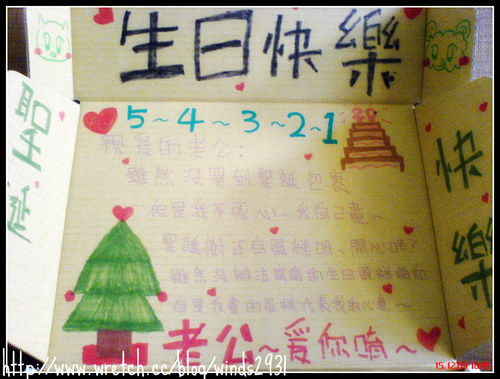 生日快樂
聖誕
快樂
5~4~3~2~1
親愛的老公:
雖然沒買到聖誕包裹
但是我不死心~我自己畫~
聖誕樹還有蛋糕唷~開心嗎?
雖然沒辦法買真的生日蛋糕給你
但是我畫的蛋糕代表我的心意~
老公~爱你唷~
http://www.wretch.cc/blog/winds2931